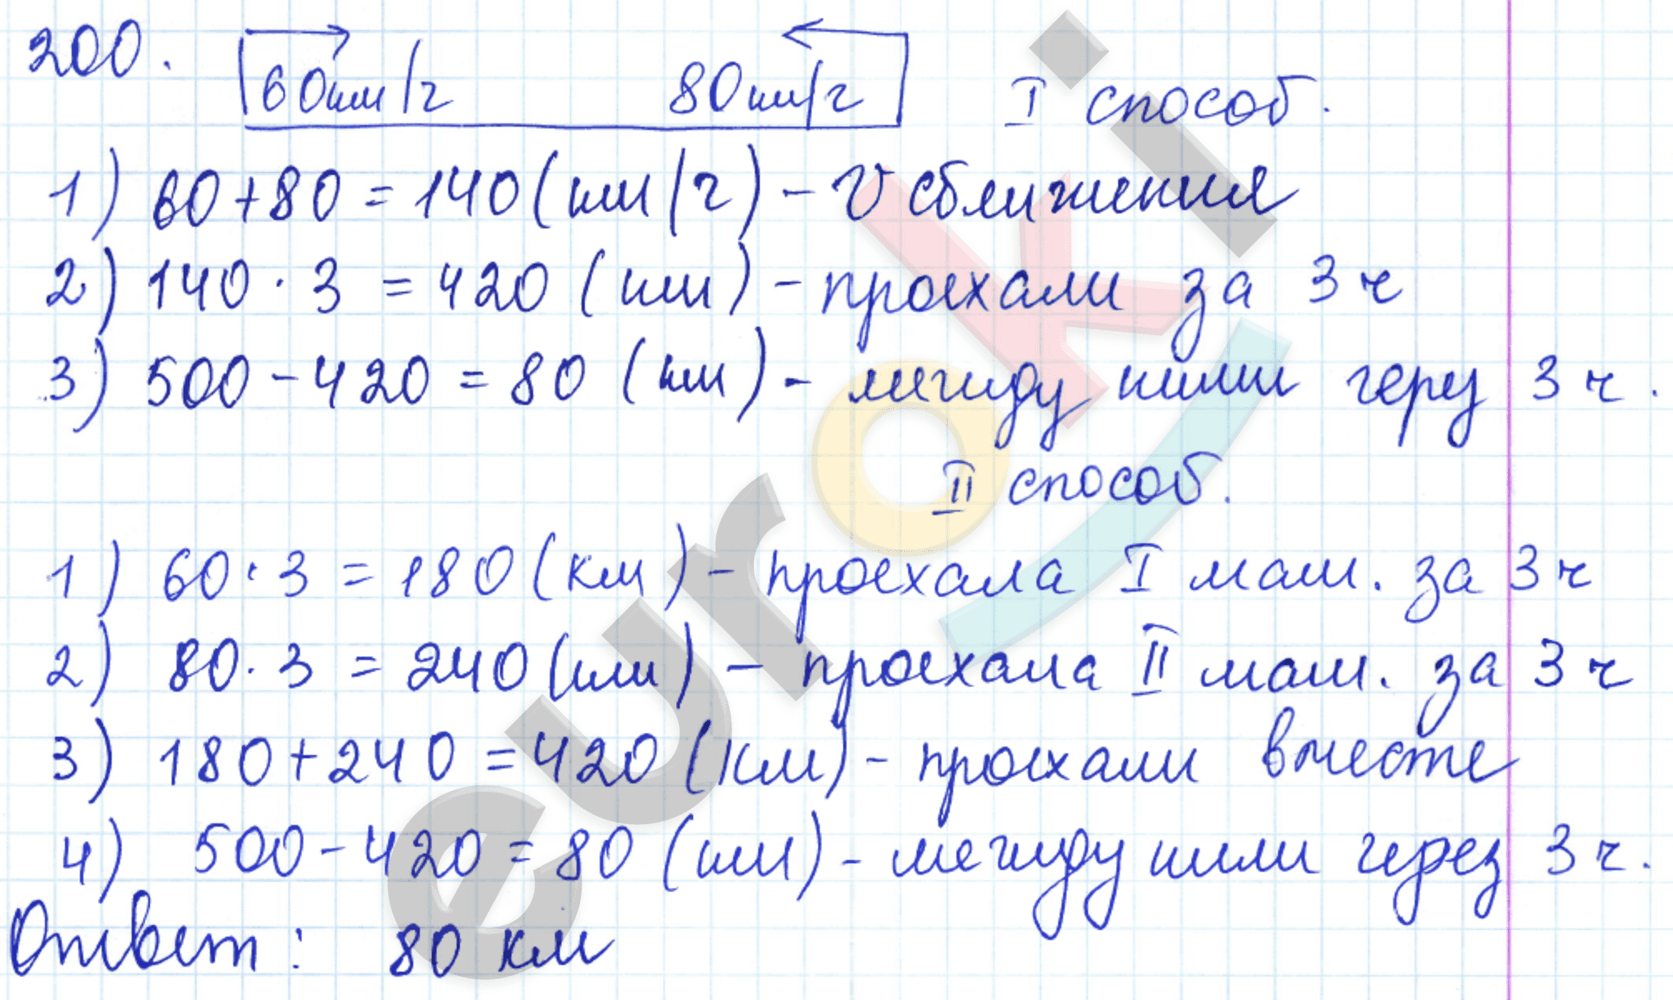 200. 60км/ч 80км/ч I способ.
1) 60+80=140(км/ч) - v сближения
2) 140·3=420 (км) - проехали за 3 ч
3) 500-420=80 (км) - между ними через 3 ч.
II способ.
1) 60·3=180(км) - проехала I маш. за 3 ч
2) 80·3=240(км) - проехала II маш. за 3 ч
3) 180+240=420 (км) - проехали вместе
4) 500-420=80 (км) - между ними через 3 ч.
Ответ: 80 км
euroki